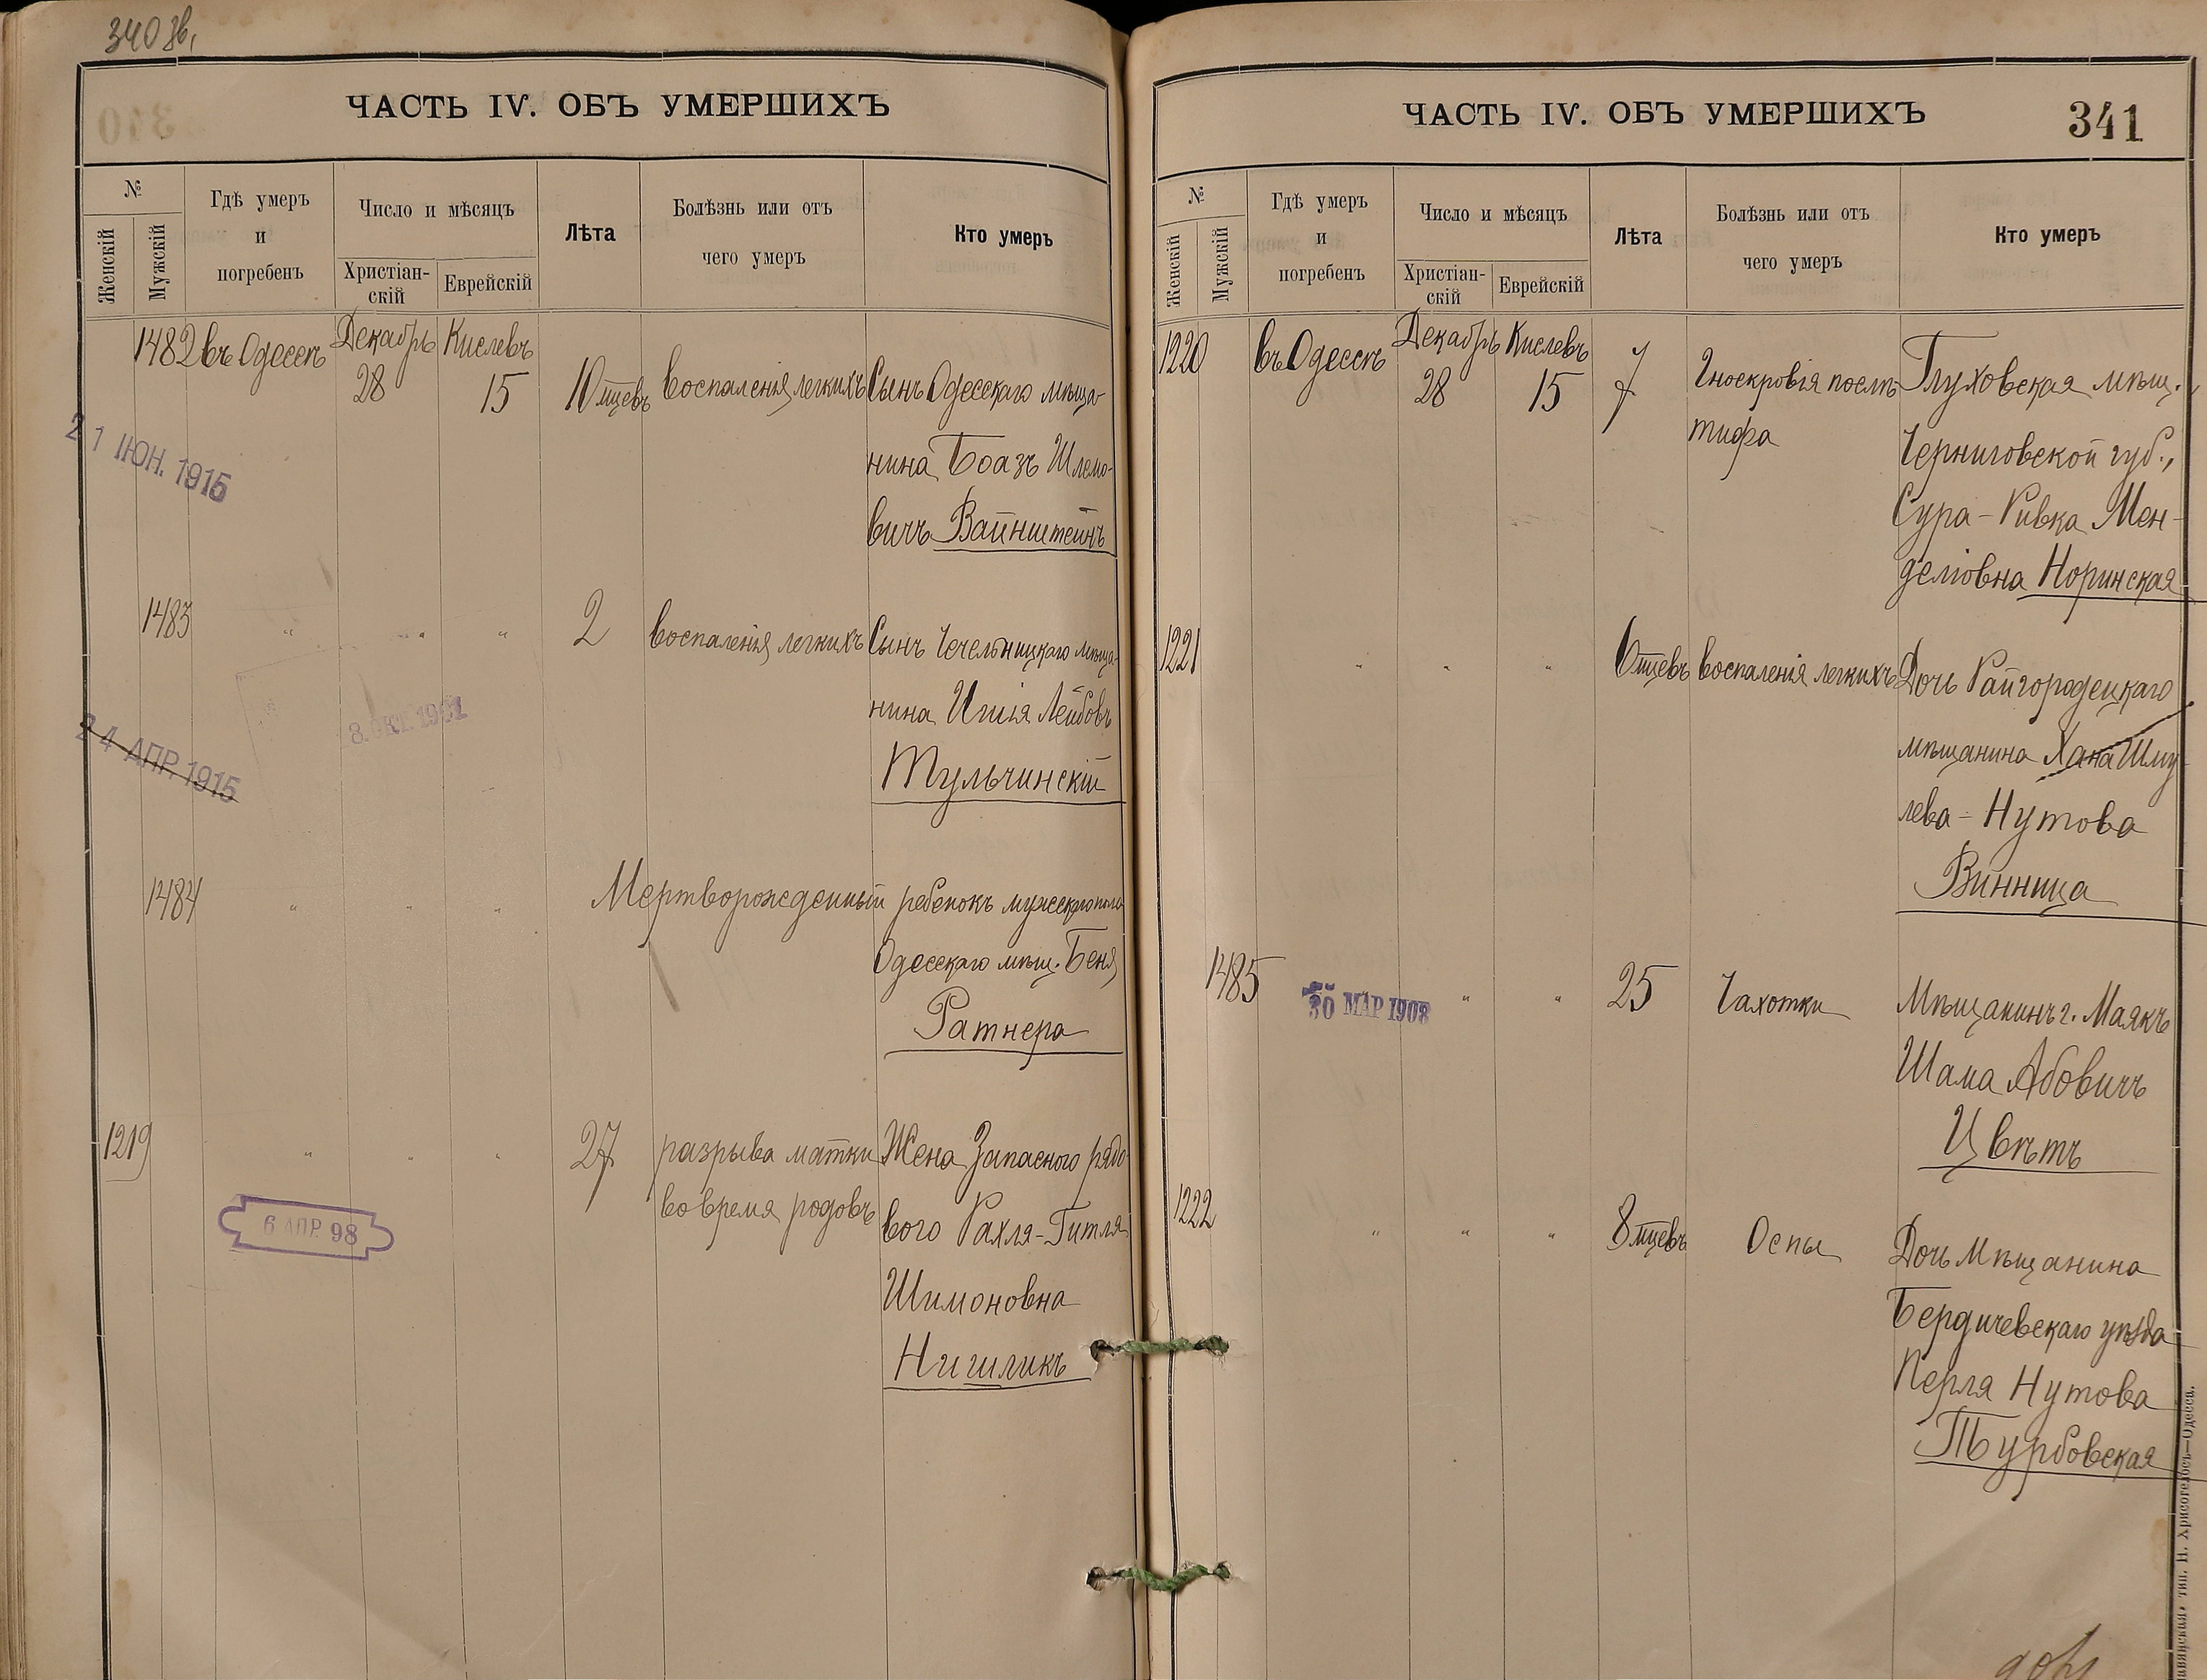 340 зв,
ЧАСТЬ IV. ОБЪ УМЕРШИХЪ
№
Женскій
Мужскій
Гдѣ умеръ
и
погребенъ
Число и мѣсяцъ
Христіан-
скій
Еврейскій
Лѣта
Болѣзнь или отъ
чего умеръ
Кто умеръ
1482 въ Одессѣ Декабрь Кислевъ
28 15 10 мцевъ воспаленія легкихъ Сынъ Одесскаго мѣща-
нина Боазъ Шлемо-
вичъ Вайнштейнъ
21 ІЮН. 1915
1483 " " " 2 воспаленія легкихъ Сынъ Чечельницкаго мѣща-
нина Иція Лейбовъ
Тульчинскій
24 АПР. 1915
1484 " " " Мертворожденный ребенокъ мужескаго пола
Одесскаго мѣщ. Беня
Ратнера
1219 " " " 27 разрыва матки Жена Запаснаго рядо-
во время родовъ вого Рахля-Гитля
Шимоновна
Нишликъ
6 АПР. 98
ЧАСТЬ IV. ОБЪ УМЕРШИХЪ
341
№
Женскій
Мужскій
Гдѣ умеръ
и
погребенъ
Число и мѣсяцъ
Христіан-
скій
Еврейскій
Лѣта
Болѣзнь или отъ
чего умеръ
Кто умеръ
1220 въ Одессѣ Декабрь Кислевъ
28 15 7 Гноекровія послѣ Глуховская мѣщ.
тифа Черниговской губ.,
Сура-Ривка Мен-
деліовна Норинская
1221 " " " 6 мцевъ воспаленія легкихъ Дочь Райгородецкаго
мѣщанина Хана Шму
лева-Нутова
Винница
1485 30 МАР 1908 " " 25 Чахотки Мѣщанинъ г. Маякъ
Шама Абовичъ
Цвѣтъ
1222 " " " 8 мцевъ Оспы Дочь Мѣщанина
Бердичевскаго уѣзда
Перля Нутова
Турбовская
тип. Н. Хрисогелосъ—Одесса.